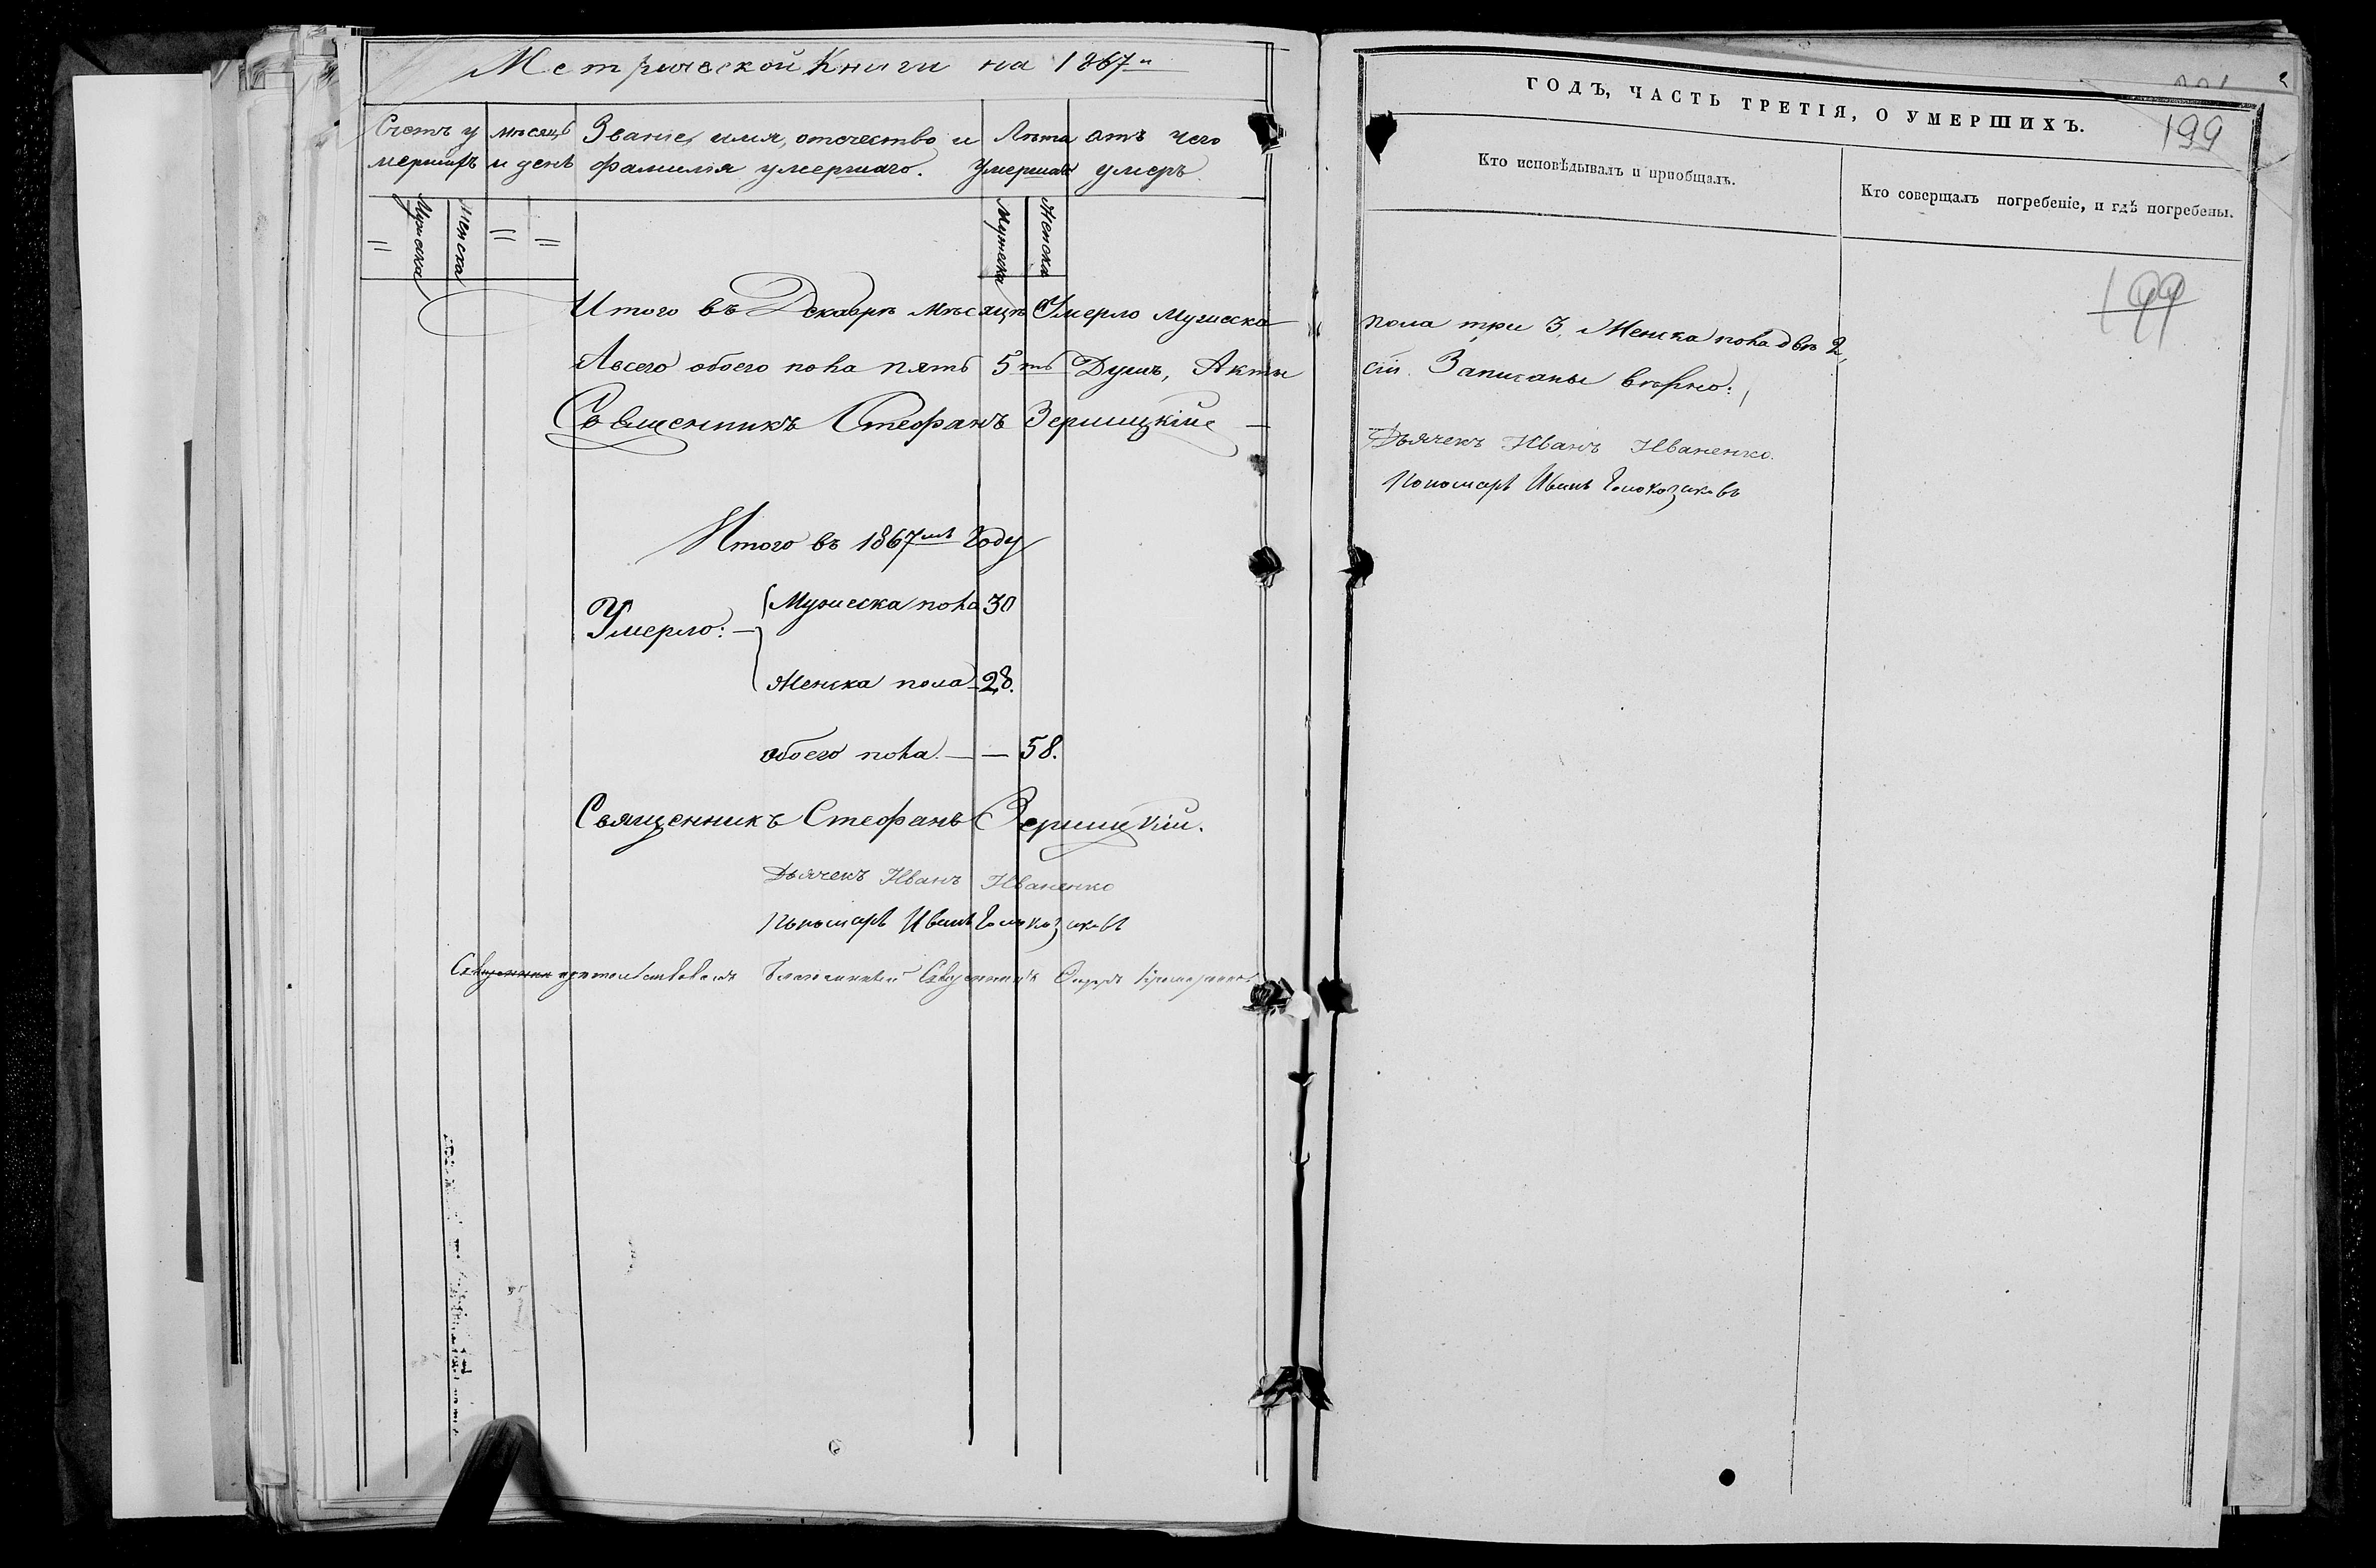 Метрической Книги на 1867й
Счетъ у
мершихъ
Мѣсяцъ
и день
Званіе, имя, отечество и
фамилія умершаго.
Лѣта
Умершаго
отъ чего
умеръ.
Мужеска
Женска
Мужеска
Женска
Итого въ Декабрѣ мѣсяцѣ Умерло мужеска
Авсего обоего пола пять 5ть Душъ, Акты
Священникъ Стефанъ
Итого въ 1867мъ Году
Умерло:
Мужеска пола 30
Женска пола 28.
обоего пола. — — 58.
Священникъ Стефанъ
Дьячекъ Иванъ Иваненко
Пономарь Иванъ
Благочинный Священникъ
ГОДЪ, ЧАСТЬ ТРЕТІЯ, О УМЕРШИХЪ.
199
Кто исповѣдывалъ и пріобщалъ.
Кто совершалъ погребеніе, и гдѣ погребены.
199
пола три 3, Женска пола двѣ 2,
сіи Записаны вѣрно:
Дьячекъ Иванъ Иваненко.
Пономарь Иванъ